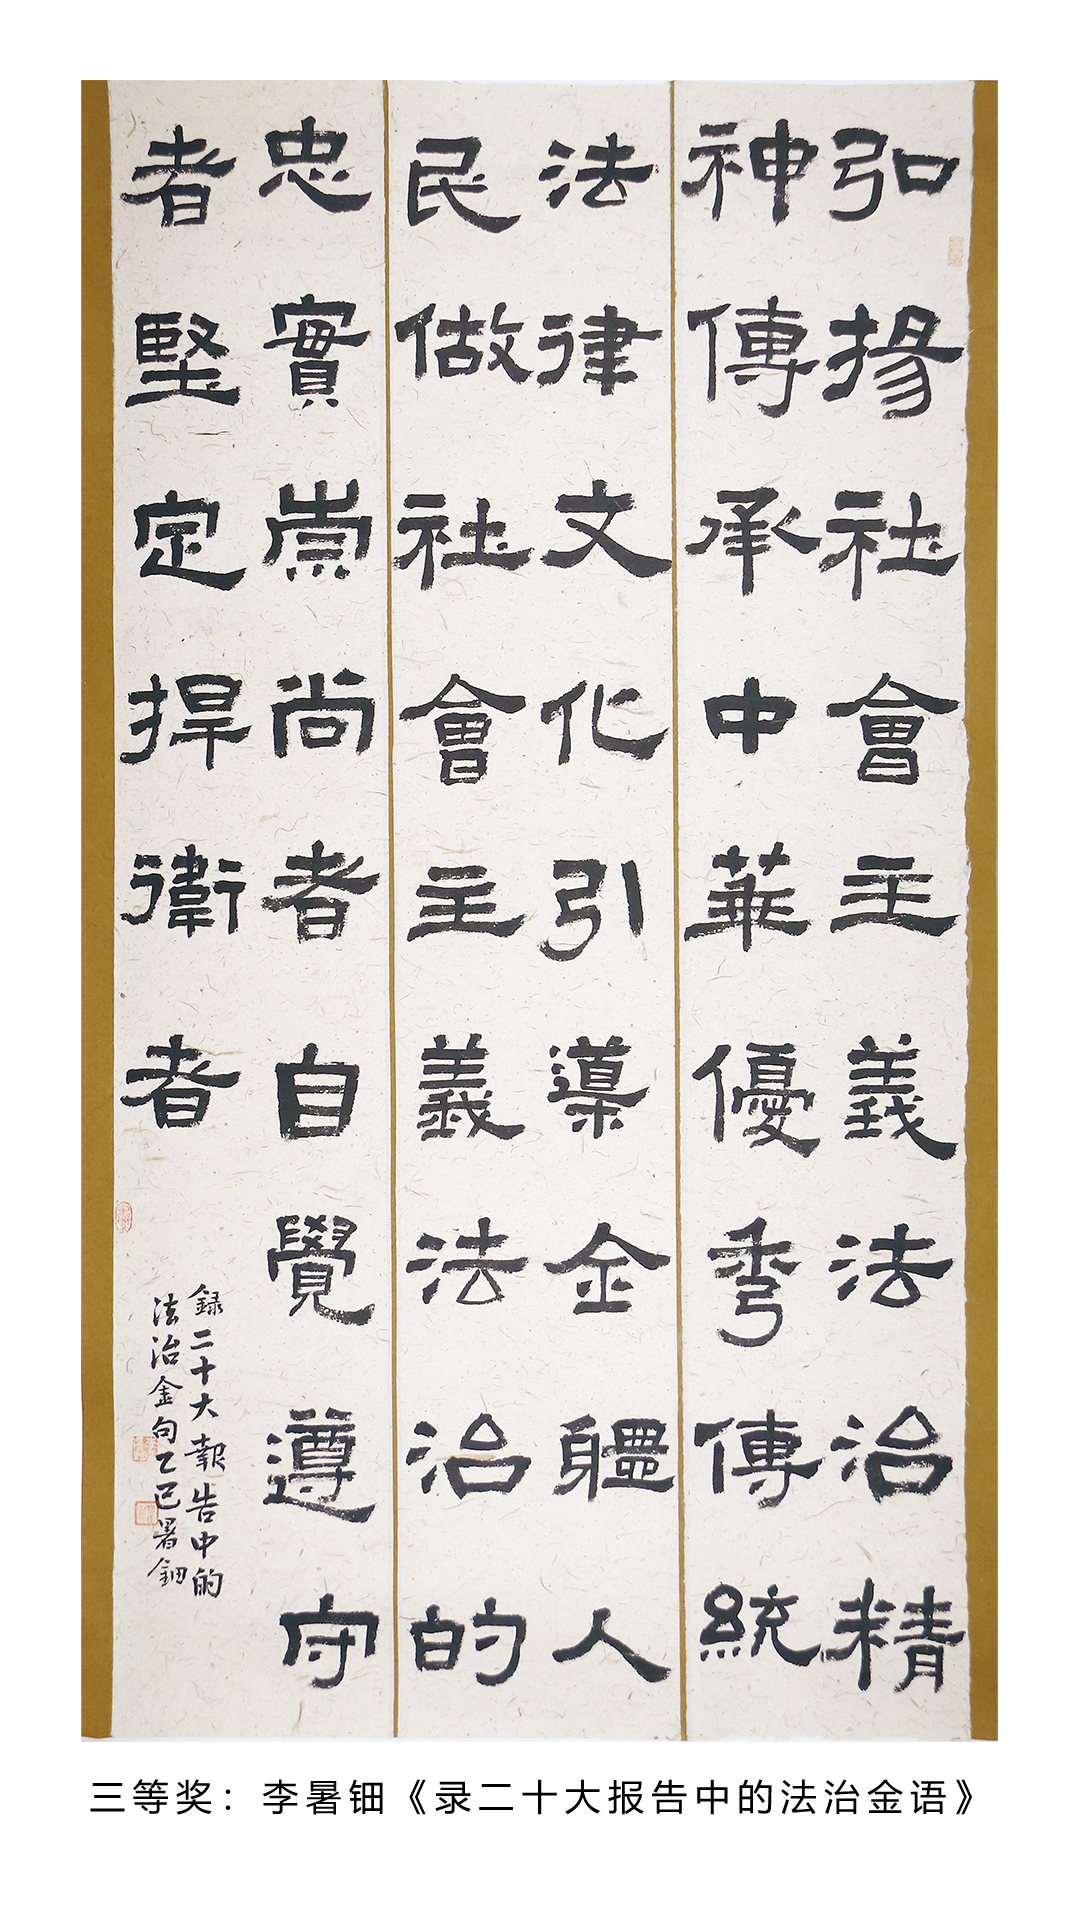 弘揚社會主義法治精
神傳承中華優秀傳統
法律文化引導全體人
民做社會主義法治的
忠實崇尚者自覺遵守
者堅定捍衛者
録二十大報告中的
法治金句乙巳暑鈿
三等奖：李暑钿《录二十大报告中的法治金语》